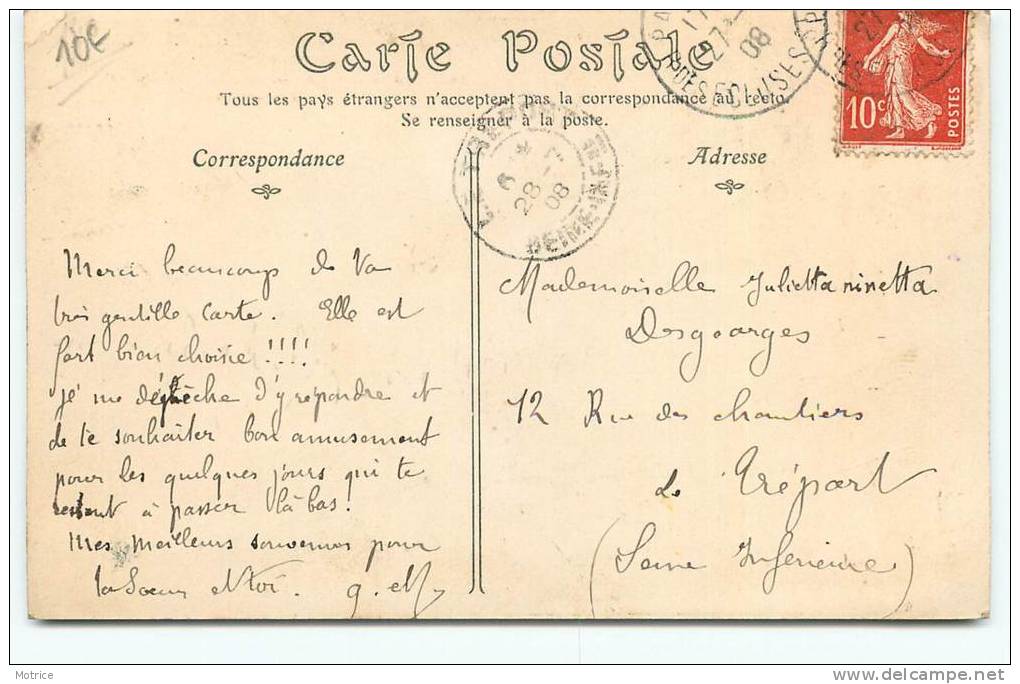 10€
Carte Postale
Tous les pays étrangers n'acceptent pas la correspondance au recto.
Se renseigner à la poste.
Correspondance
Adresse
27 08
10c POSTES
28 08
SEINE-INFRE
Merci beaucoup de Va
très gentille carte. Elle est
fort bien choisie !!!!
Je me dépêche d'y répondre et
de te souhaiter bon amusement
pour les quelques jours qui te
restent à passer là bas!
Mes meilleurs souvenirs pour
ta Soeur et toi.
Mademoiselle Julietta ninetta
Desgeorges
12 Rue des chantiers
Le Tréport
(Seine Inferieure)
Motrice
www.delcampe.net